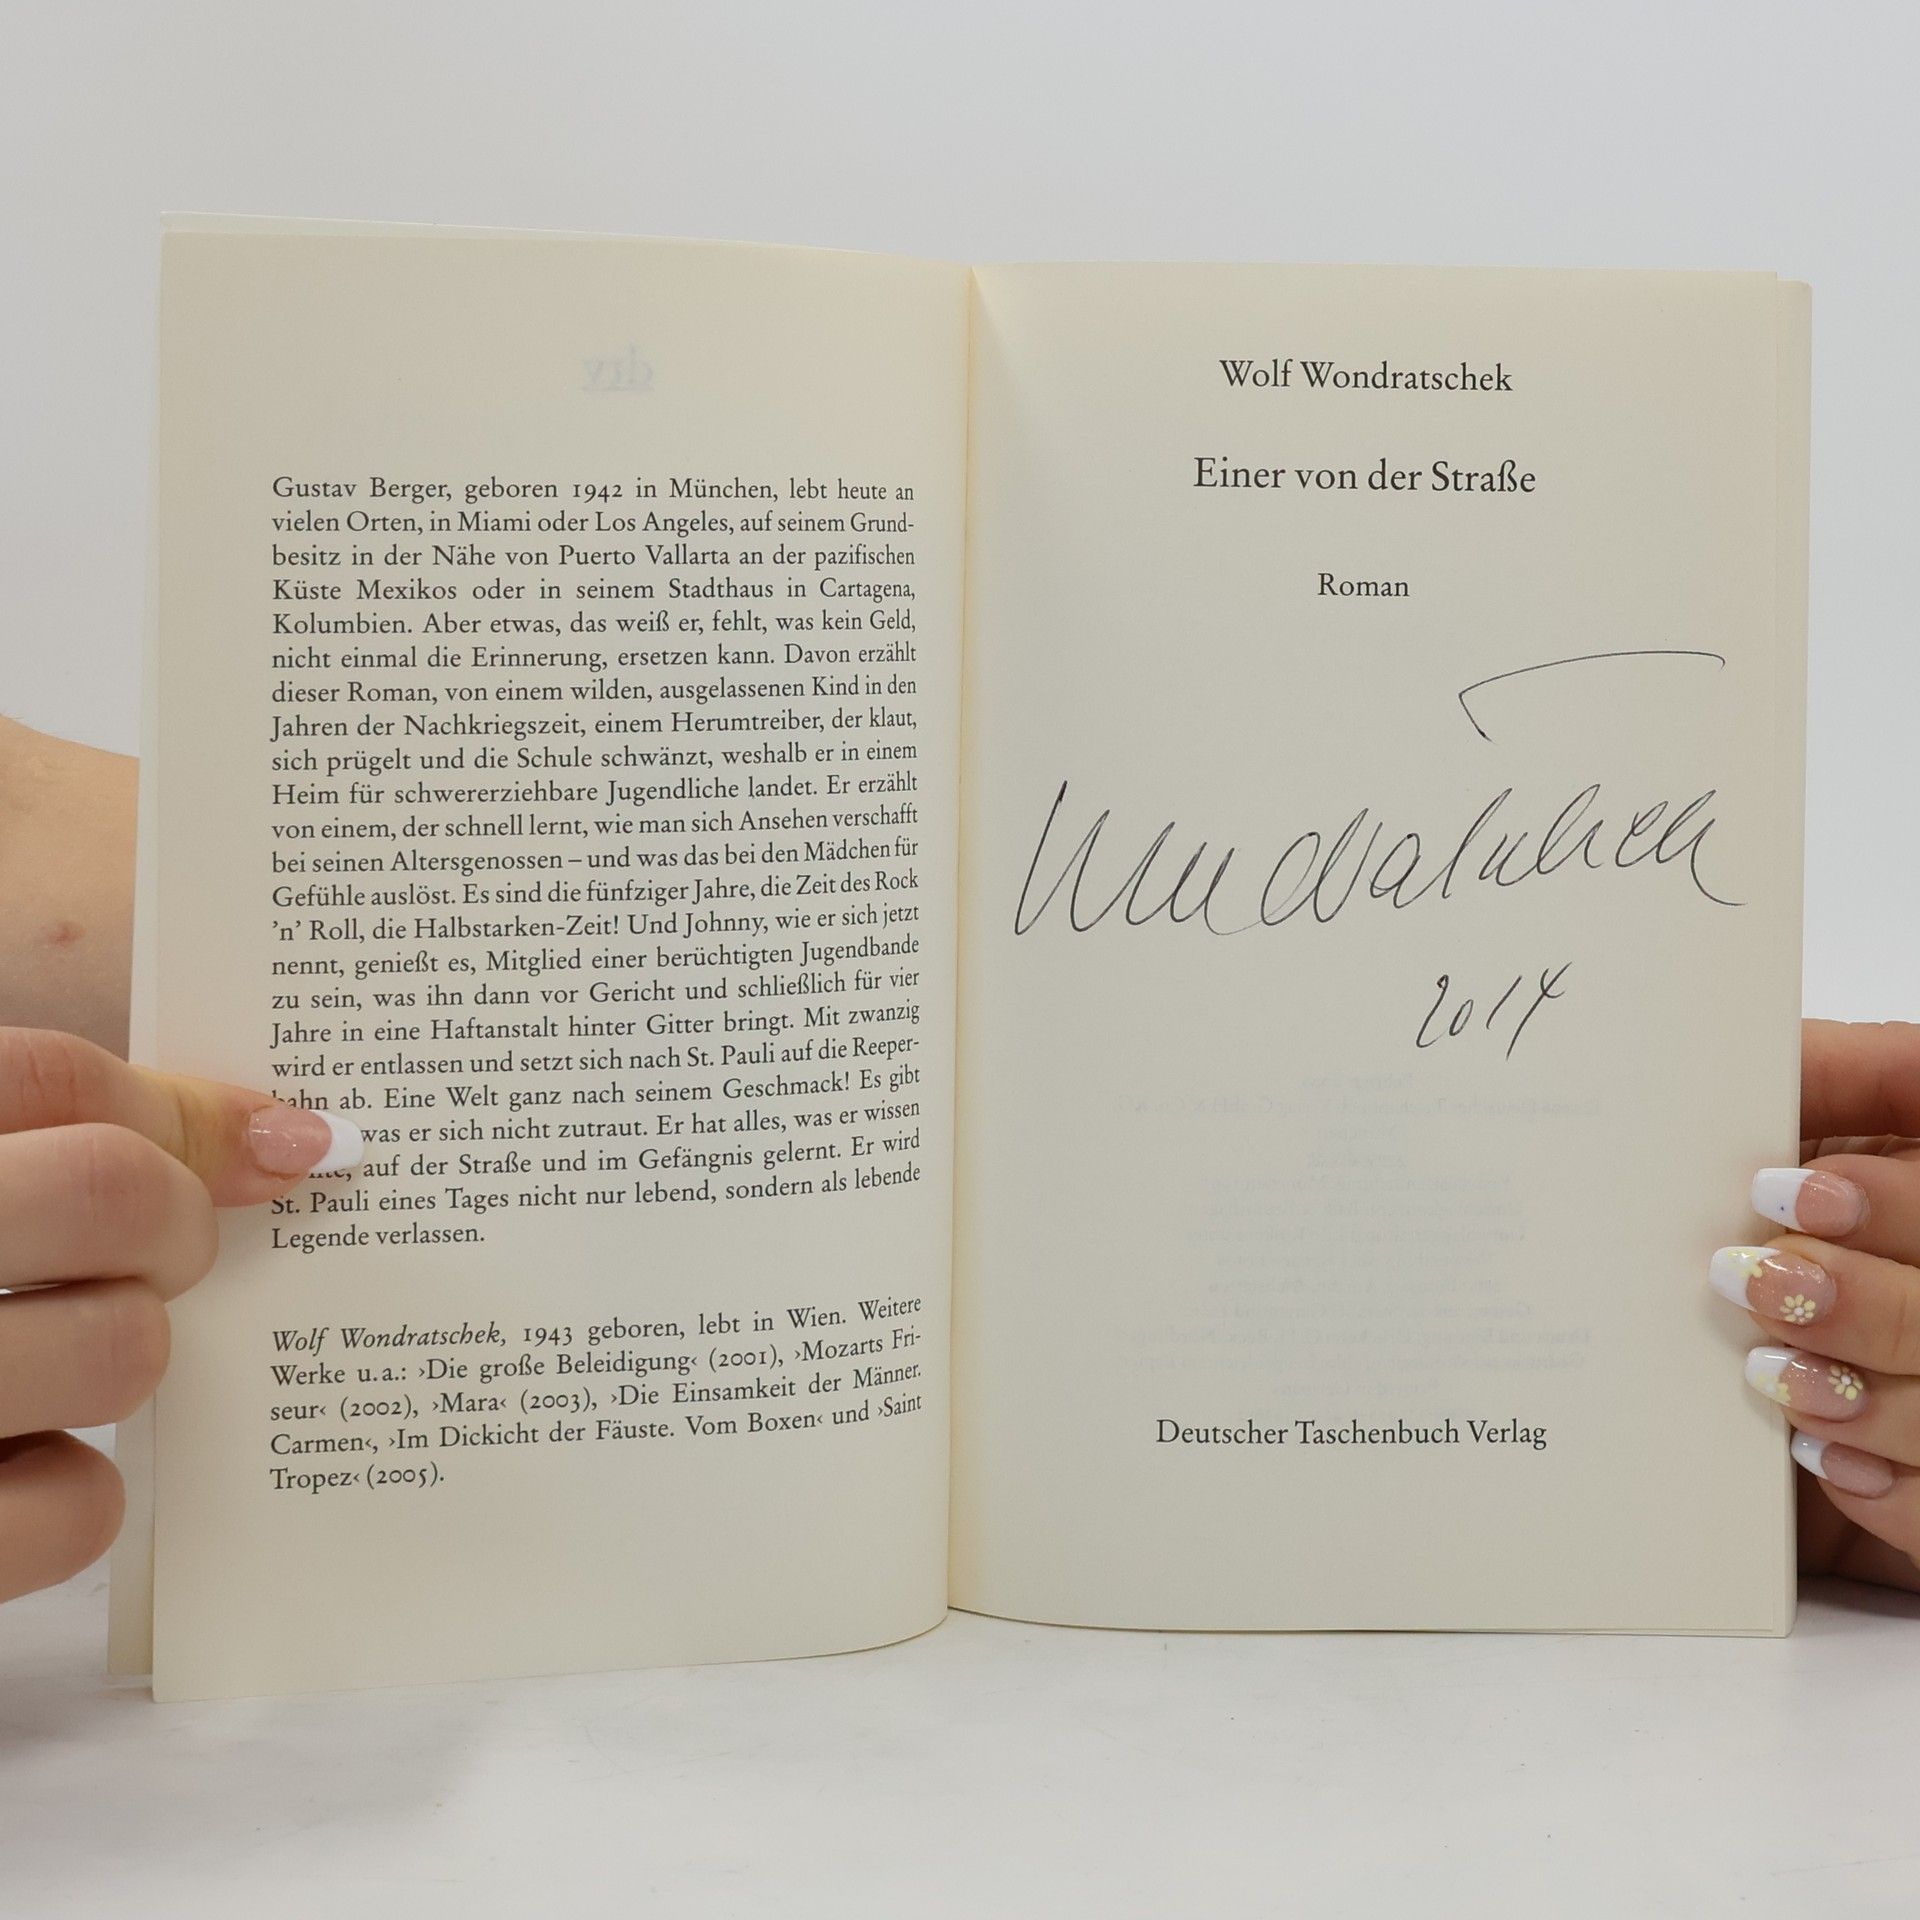 Gustav Berger, geboren 1942 in München, lebt heute an
vielen Orten, in Miami oder Los Angeles, auf seinem Grund-
besitz in der Nähe von Puerto Vallarta an der pazifischen
Küste Mexikos oder in seinem Stadthaus in Cartagena,
Kolumbien. Aber etwas, das weiß er, fehlt, was kein Geld,
nicht einmal die Erinnerung, ersetzen kann. Davon erzählt
dieser Roman, von einem wilden, ausgelassenen Kind in den
Jahren der Nachkriegszeit, einem Herumtreiber, der klaut,
sich prügelt und die Schule schwänzt, weshalb er in einem
Heim für schwererziehbare Jugendliche landet. Er erzählt
von einem, der schnell lernt, wie man sich Ansehen verschafft
bei seinen Altersgenossen – und was das bei den Mädchen für
Gefühle auslöst. Es sind die fünfziger Jahre, die Zeit des Rock
’n’ Roll, die Halbstarken-Zeit! Und Johnny, wie er sich jetzt
nennt, genießt es, Mitglied einer berüchtigten Jugendbande
zu sein, was ihn dann vor Gericht und schließlich für vier
Jahre in eine Haftanstalt hinter Gitter bringt. Mit zwanzig
wird er entlassen und setzt sich nach St. Pauli auf die Reeper-
bahn ab. Eine Welt ganz nach seinem Geschmack! Es gibt
was er sich nicht zutraut. Er hat alles, was er wissen
auf der Straße und im Gefängnis gelernt. Er wird
St. Pauli eines Tages nicht nur lebend, sondern als lebende
Legende verlassen.
Wolf Wondratschek, 1943 geboren, lebt in Wien. Weitere
Werke u.a.: ›Die große Beleidigung‹ (2001), ›Mozarts Fri-
seur‹ (2002), ›Mara‹ (2003), ›Die Einsamkeit der Männer.
Carmen‹, ›Im Dickicht der Fäuste. Vom Boxen‹ und ›Saint
Tropez‹ (2005).
Wolf Wondratschek
Einer von der Straße
Roman
Wondratschek
2014
Deutscher Taschenbuch Verlag